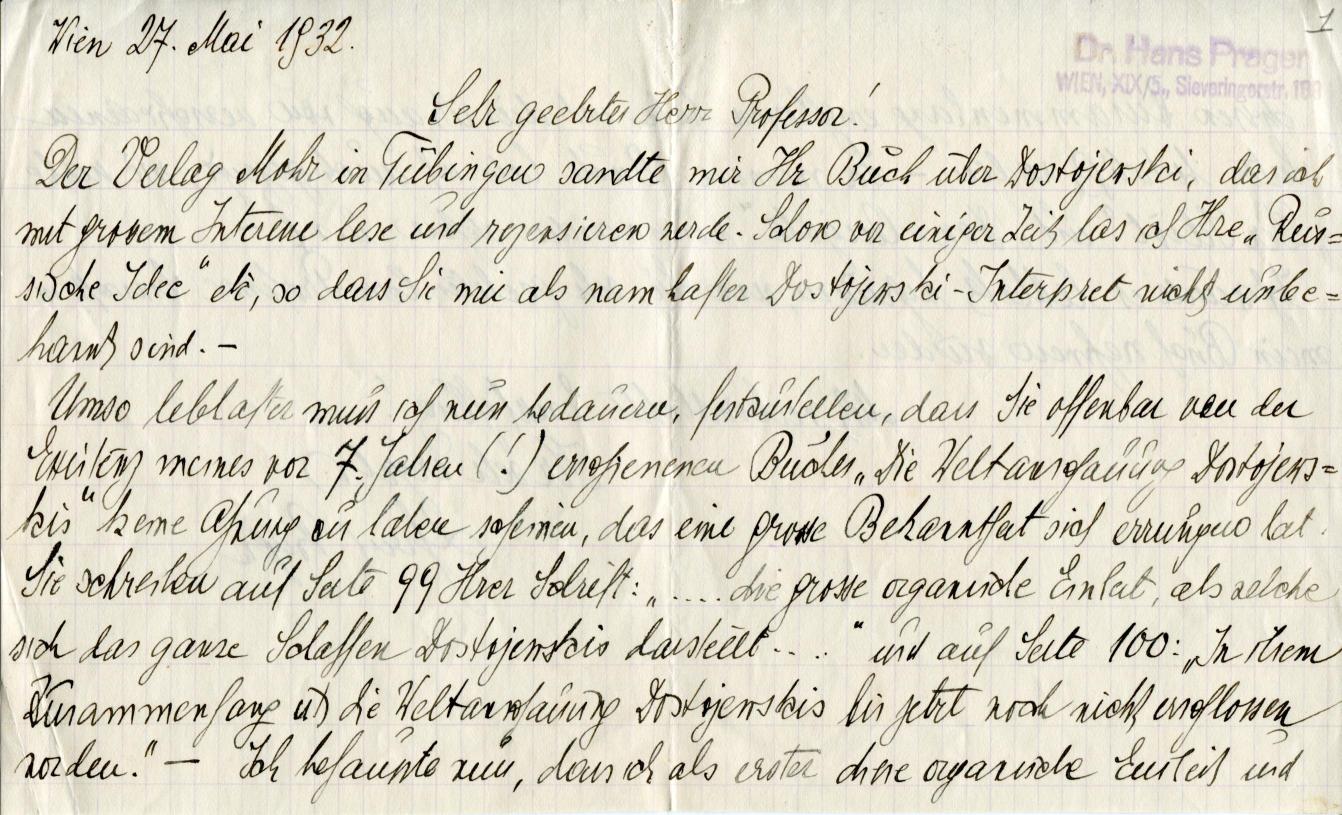 1
Wien 27. Mai 1932.
Dr. Hans Prager
WIEN, XIX/5., Sieveringerstr.
Sehr geehrter Herr Professor!
Der Verlag Mohr in Tübingen sandte mir Ihr Buch über Dostojewski, das ich
mit grossem Interesse lese und rezensieren werde. Schon vor einiger Zeit las ich Ihre „Rus=
sische Idee" etc, so dass Sie mir als namhafter Dostojewski-Interpret nicht unbe=
kannt sind. –
Umso lebhafter muss ich nun bedauern, festzustellen, dass Sie offenbar von der
Existenz meines vor 7 Jahren (!) erschienenen Buches „Die Weltanschauung Dostojews=
kis" keine Ahnung zu haben scheinen, das eine grosse Bekanntheit sich errungen hat.
Sie schreiben auf Seite 99 Ihrer Schrift: „.... die grosse organische Einheit, als welche
sich das ganze Schaffen Dostojewskis darstellt...." und auf Seite 100: „In ihrem
Zusammenhang ist die Weltanschauung Dostojewskis bis jetzt noch nicht erschlossen
worden." – Ich behaupte nun, dass ich als erster diese organische Einheit und